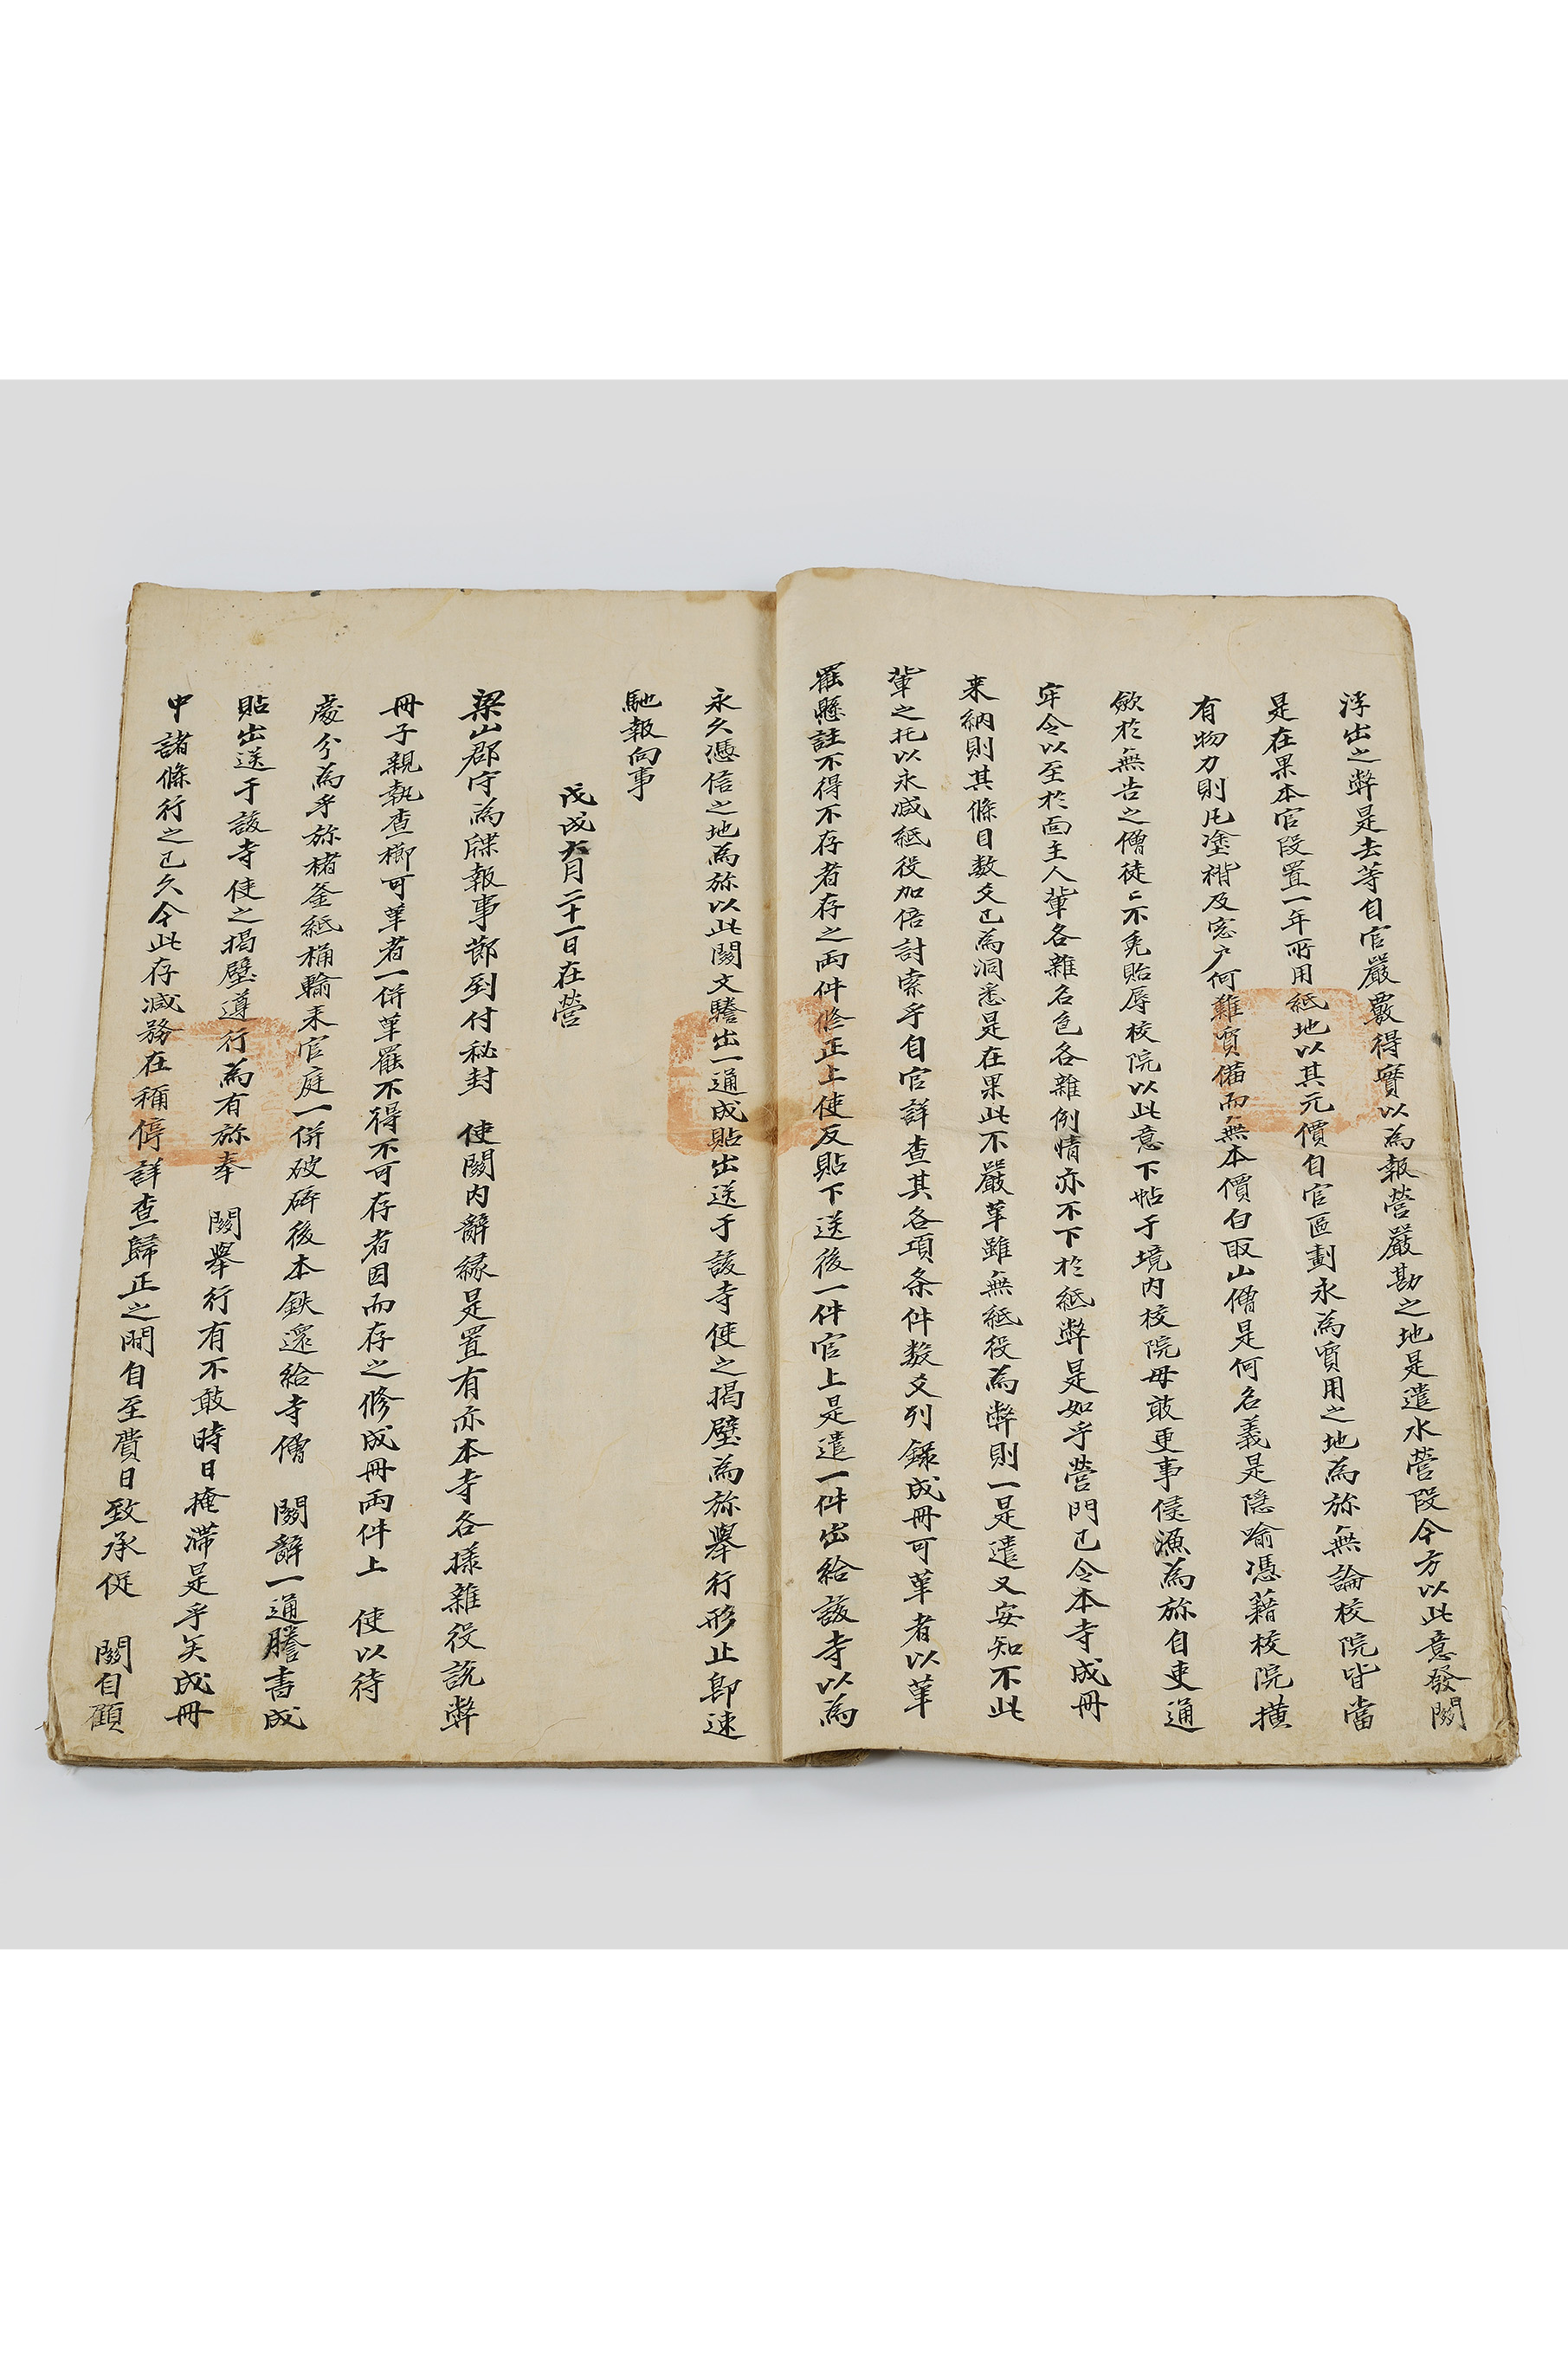 浮出之弊是去等自官嚴覈得實以為報營嚴勘之地是遣水營段今方以此意發關
是在果本官段置一年所用紙地以其元價自官區劃永為貿用之地為旀無論校院皆當
有物力則凡塗褙及窓戶何難貿備而無本價白取山僧是何名義是隱喩憑藉校院橫
歛於無告之僧徒〻不免貽辱校院以此意下帖于境內校院毋敢更事侵漁為旀自吏通
牢令以至於面主人輩各雜名色各雜例情亦不下於紙弊是如乎營門已令本寺成冊
来納則其條目数爻已為洞悉是在果此不嚴革雖無紙役為弊則一是遣又安知不此
輩之托以永减紙役加倍討索乎自官詳查其各項条件数爻列錄成冊可革者以革
罷懸註不得不存者存之両件修正上使反貼下送後一件官上是遣一件出給該寺以為
永久憑信之地為旀以此關文謄出一通成貼出送于該寺使之揭壁為旀舉行形止卽速
馳報向事
戊戌六月二十一日在營
梁山郡守為牒報事節到付秘封 使關內辭緣是置有亦本寺各㨾雜役說弊
冊子親執查櫛可革者一倂革罷不得不可存者因而存之修成冊両件上 使以待
處分為乎旀楮釜紙桶輸来官庭一倂破碎後本鉄還給寺僧 關辭一通謄書成
貼出送于該寺使之揭壁遵行為有旀奉 關舉行有不敢時日掩滯是乎矣成冊
中諸條行之已久今此存减務在稱停詳查歸正之間自至費日致承促 關自顧